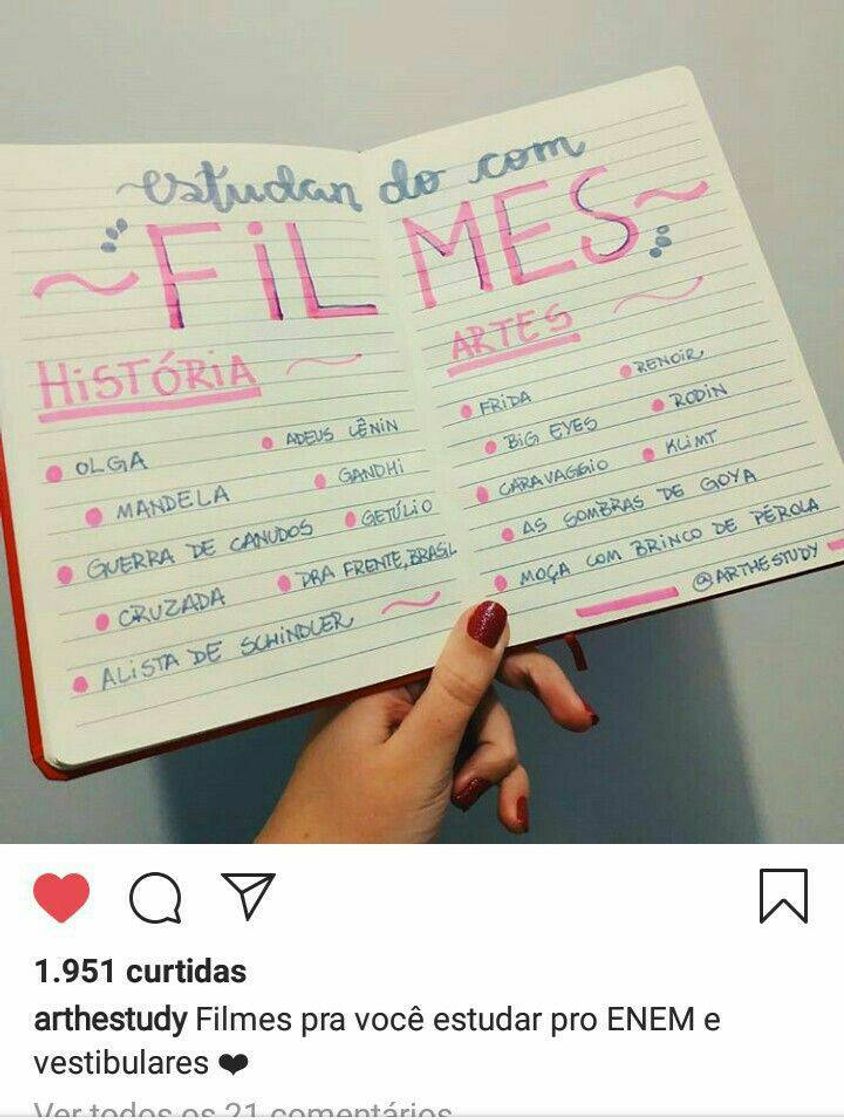 ~estudan do com
~FiL MES~
HiSTÓRiA
OLGA
ADEUS LÊNiN
MANDELA
GANDHi
GUERRA DE CANUDOS
GETÚLiO
CRUZADA
PRA FRENTE, BRASiL
ALiSTA DE SCHiNDLER
ARTES
FRiDA
RENOiR
BiG EYES
RODiN
CARAVAGGiO
KLiMT
AS SOMBRAS DE GOYA
MOÇA COM BRiNCO DE PÉROLA
@ARTHESTUDY
1.951 curtidas
arthestudy Filmes pra você estudar pro ENEM e
vestibulares ❤
Ver todos os 21 comentários